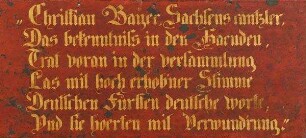 „Christian Bayer, Sachsens cantzler,
Das bekenntniss in den Haenden,
Trat voran in der versammlung
Las mit hoch erhobner Stimme
Deutschen Fürsten deutsche worte,
Und sie hoerten mit Verwundrung.“